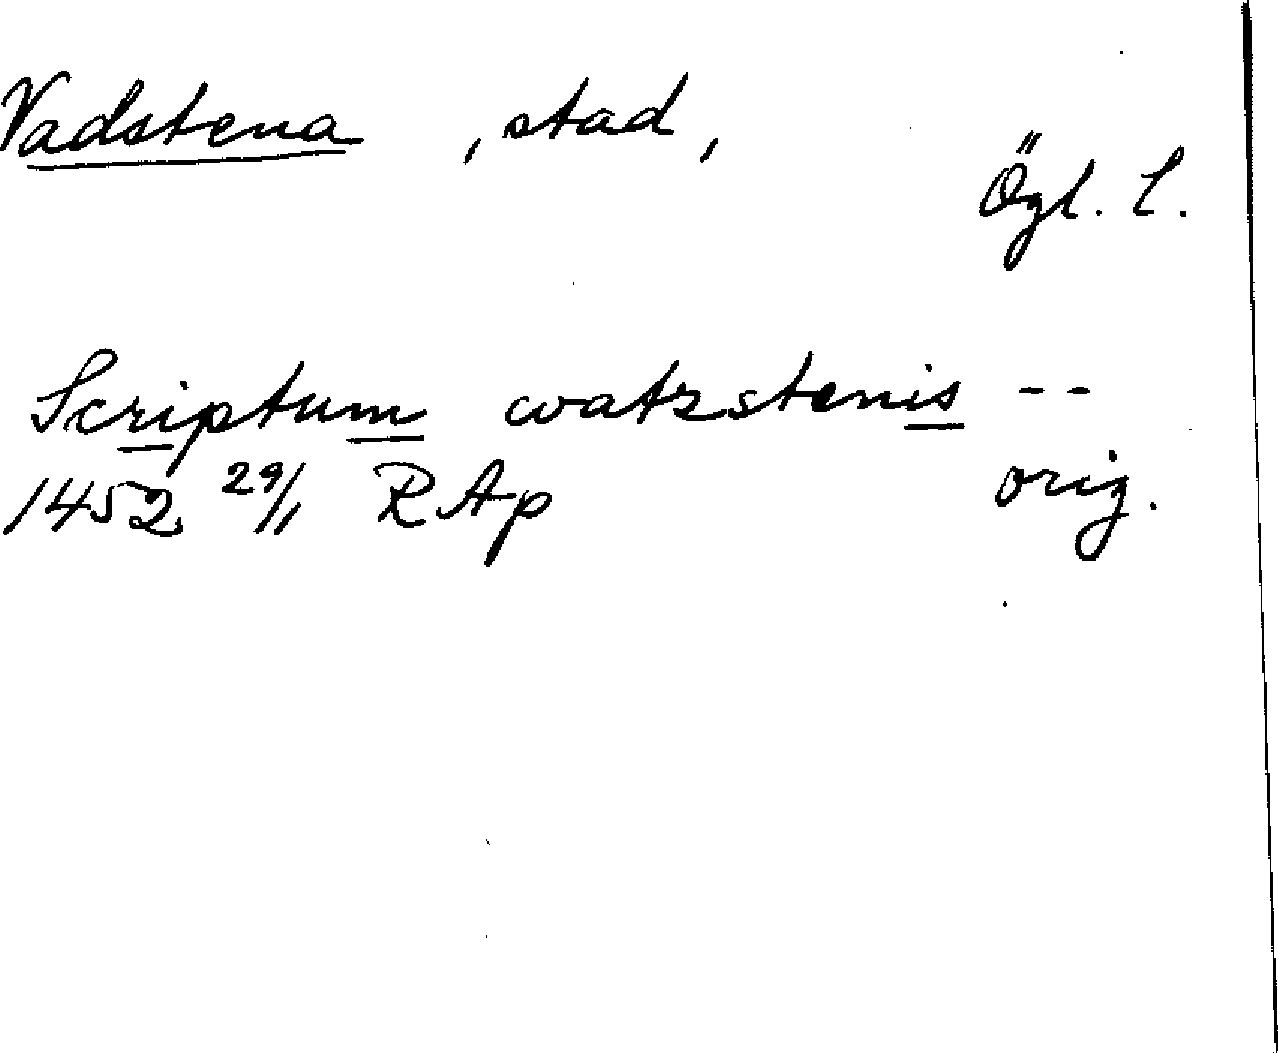 Vadstena , stad,
Ögl. l.
Scriptum watzstenis --
1452 29/1 RAp orig.